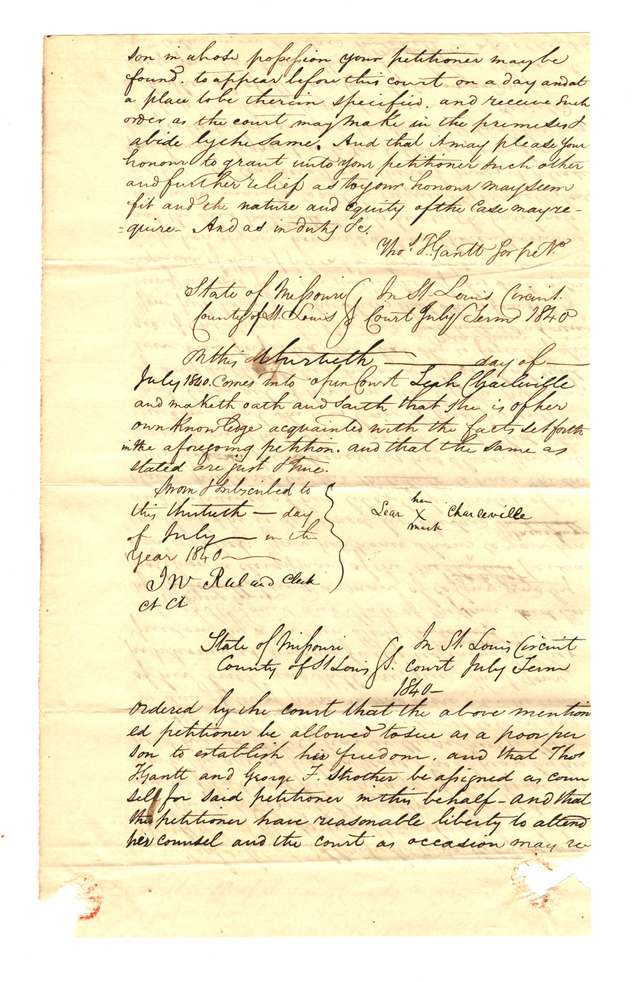 son in whose possession your petitioner may be
found. to appear before this court on a day and at
a place to be therein specified. and receive such
order as the court may make in the premises &
abide by the same. And that it may please your
honour to grant unto your petitioner such other
and further relief as to your honour may seem
fit and the nature and equity of the case may re-
=quire- And as in duty &c.
Thos. T. Gantt for pet.
State of Missouri { In St. Louis Circuit
County of St Louis } Court July Term 1840
On this thirtieth — day of —
July 1840. Comes into open Court Leah Charleville
and maketh oath and saith that she is of her
own knowledge acquainted with the facts set forth
in the aforegoing petition. and that the same as
stated are just & true.
Sworn & subscribed to
this thirtieth — day
of July — in the
year 1840 —
her
Lear X Charleville
mark
Jno Ruland Clerk
Ct Ct
State of Missouri } In St. Louis Circuit
County of St Louis } S. court July Term
1840-
Ordered by the court that the above mention
ed petitioner be allowed to sue as a poor per
son to establish his freedom. and that Thos
T. Gantt and George F. Strother be assigned as coun
sel for said petitioner in this behalf - and that
the petitioner have reasonable liberty to attend
his counsel and the court as occasion may re